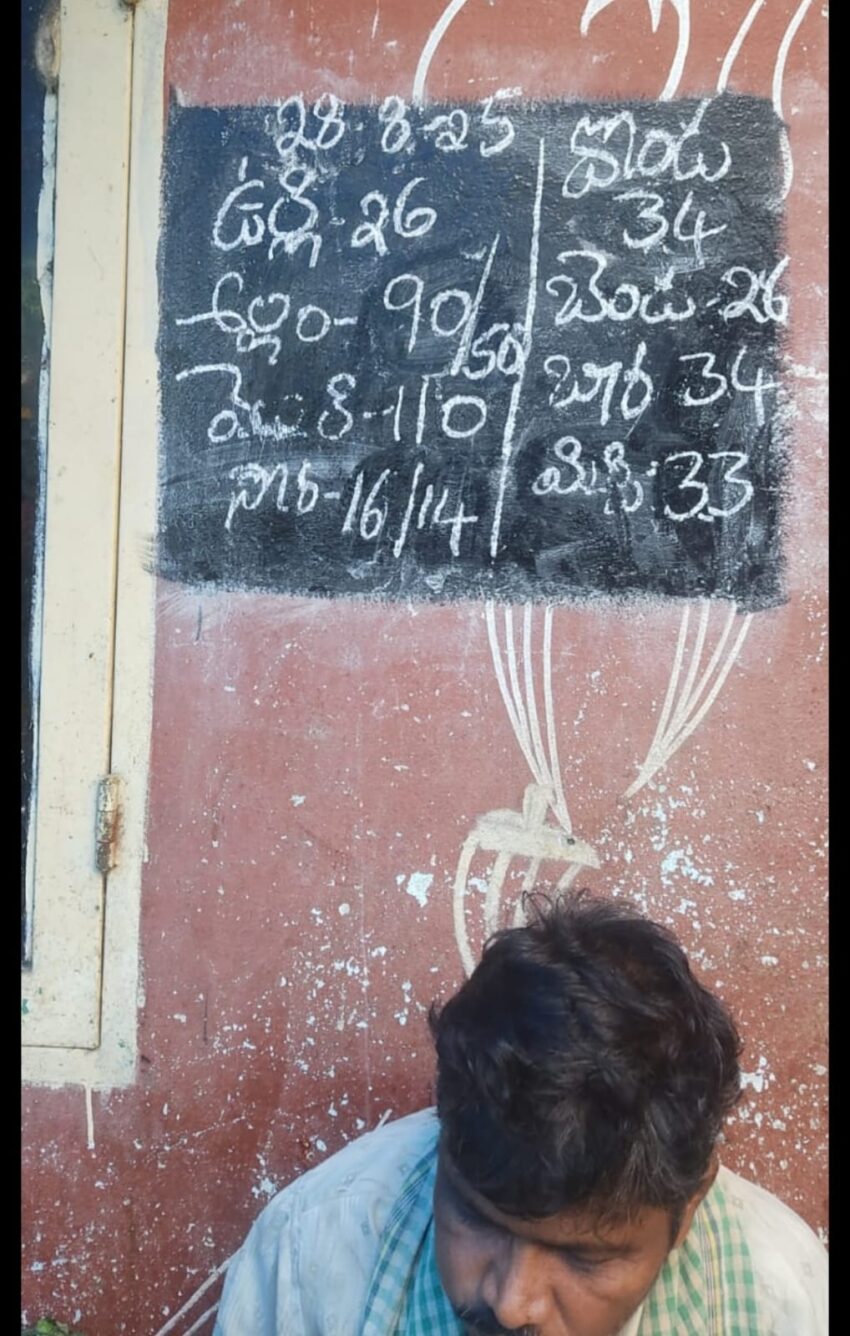 28-8-25
ఉల్లి-26
అల్లం-90/50
వెలు రి-110
సొర-16/14
దొండ
34
బెండ-26
బీర 34
మిర్చి:33